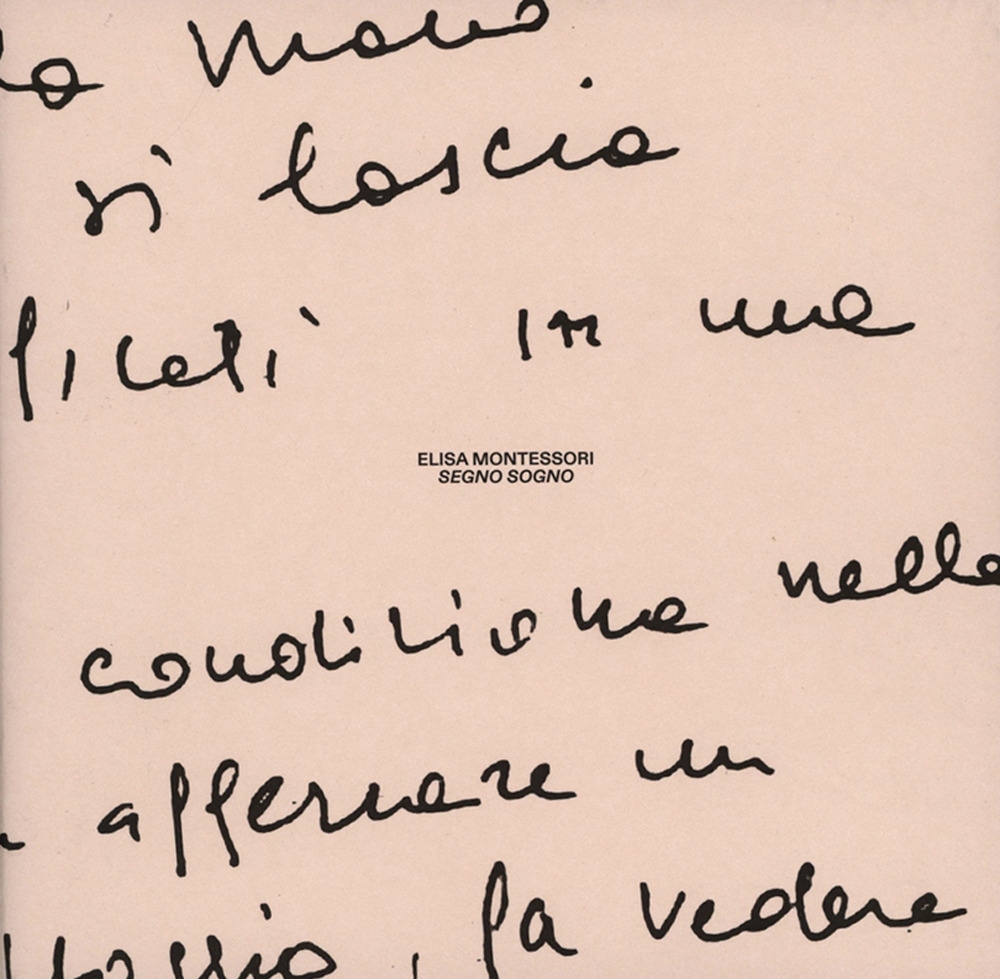 la mano
si lascia
in una
ELISA MONTESSORI
SEGNO SOGNO
condizione nella
affermare un
, fa vedere